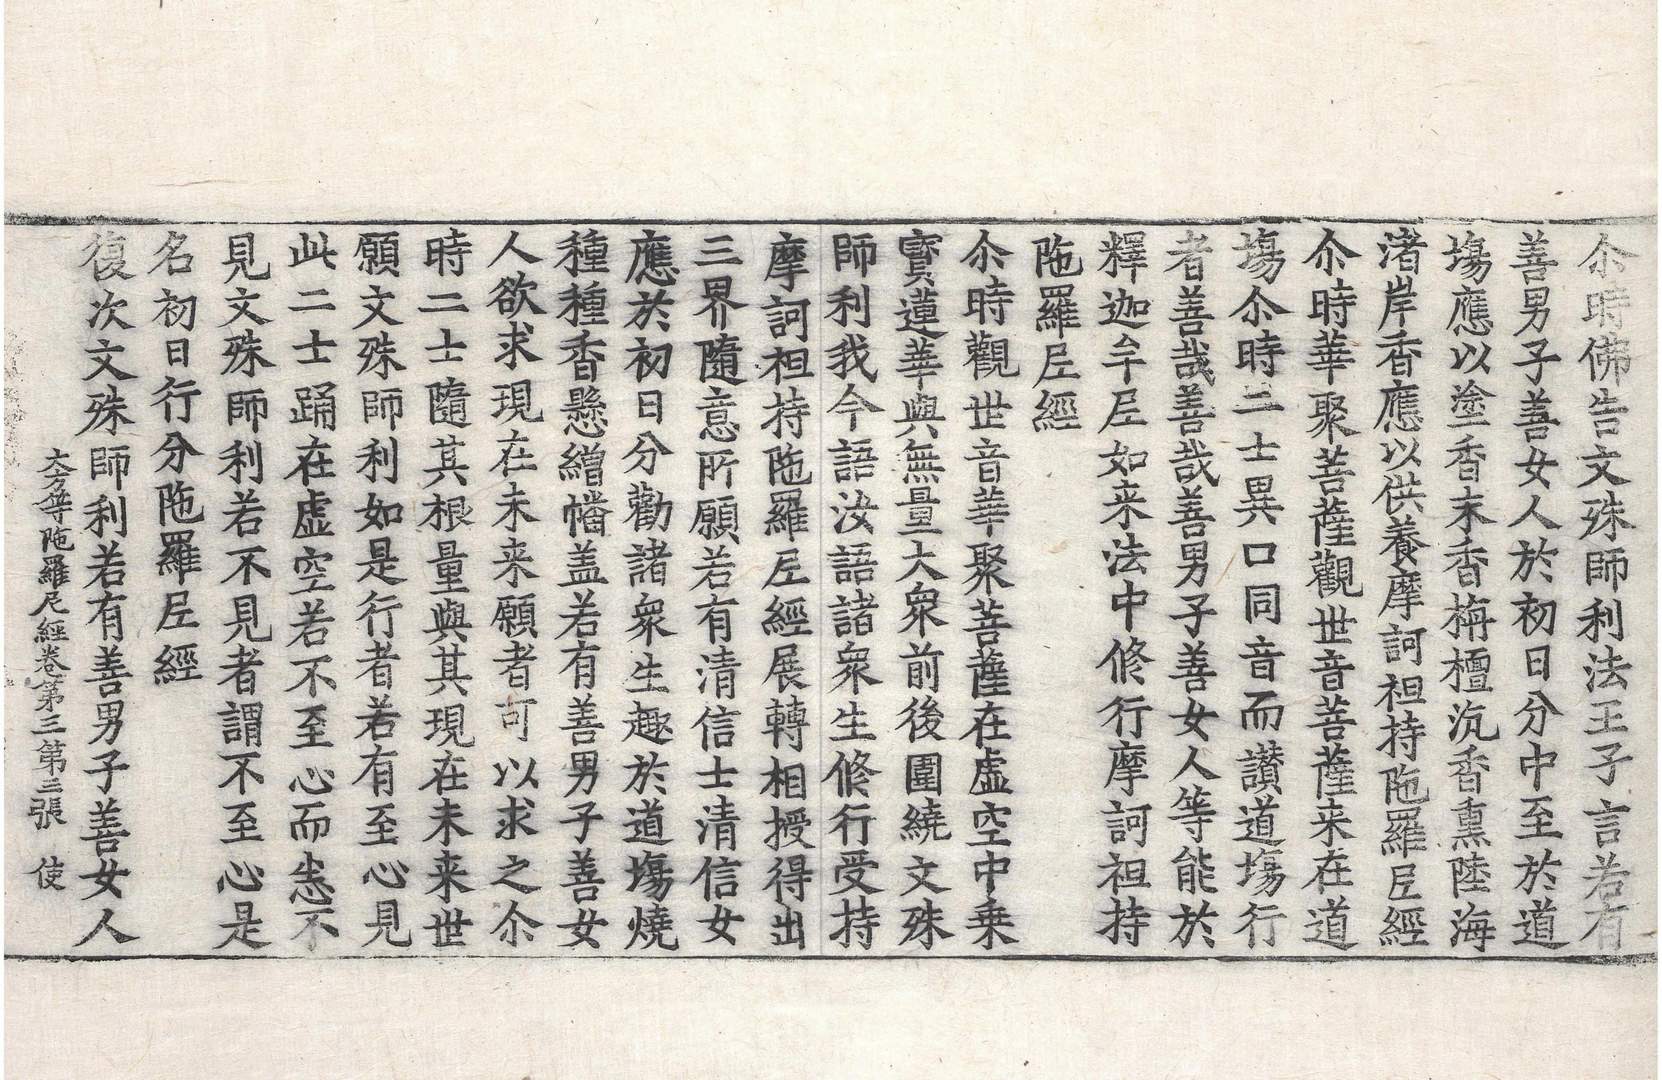 尒時佛告文殊師利法王子言若有
善男子善女人於初日分中至於道
塲應以塗香末香栴檀沉香熏陸海
渚岸香應以供養摩訶袒持陁羅尼經
尒時華聚菩薩觀世音菩薩来在道
塲尒時二士異口同音而讃道塲行
者善哉善哉善男子善女人等能於
釋迦牟尼如来法中修行摩訶袒持
陁羅尼經
尒時觀世音華聚菩薩在虛空中乗
寳蓮華與無量大衆前後圍繞文殊
師利我今語汝語諸衆生修行受持
摩訶袒持陁羅尼經展轉相授得出
三界隨意所願若有清信士清信女
應於初日分勸諸衆生趣於道塲燒
種種香懸繒幡盖若有善男子善女
人欲求現在未来願者可以求之尒
時二士隨其根量與其現在未来世
願文殊師利如是行者若有至心見
此二士踊在虛空若不至心而悉不
見文殊師利若不見者謂不至心是
名初日行分陁羅尼經
復次文殊師利若有善男子善女人
大方等陁羅尼經卷第三第三張 使